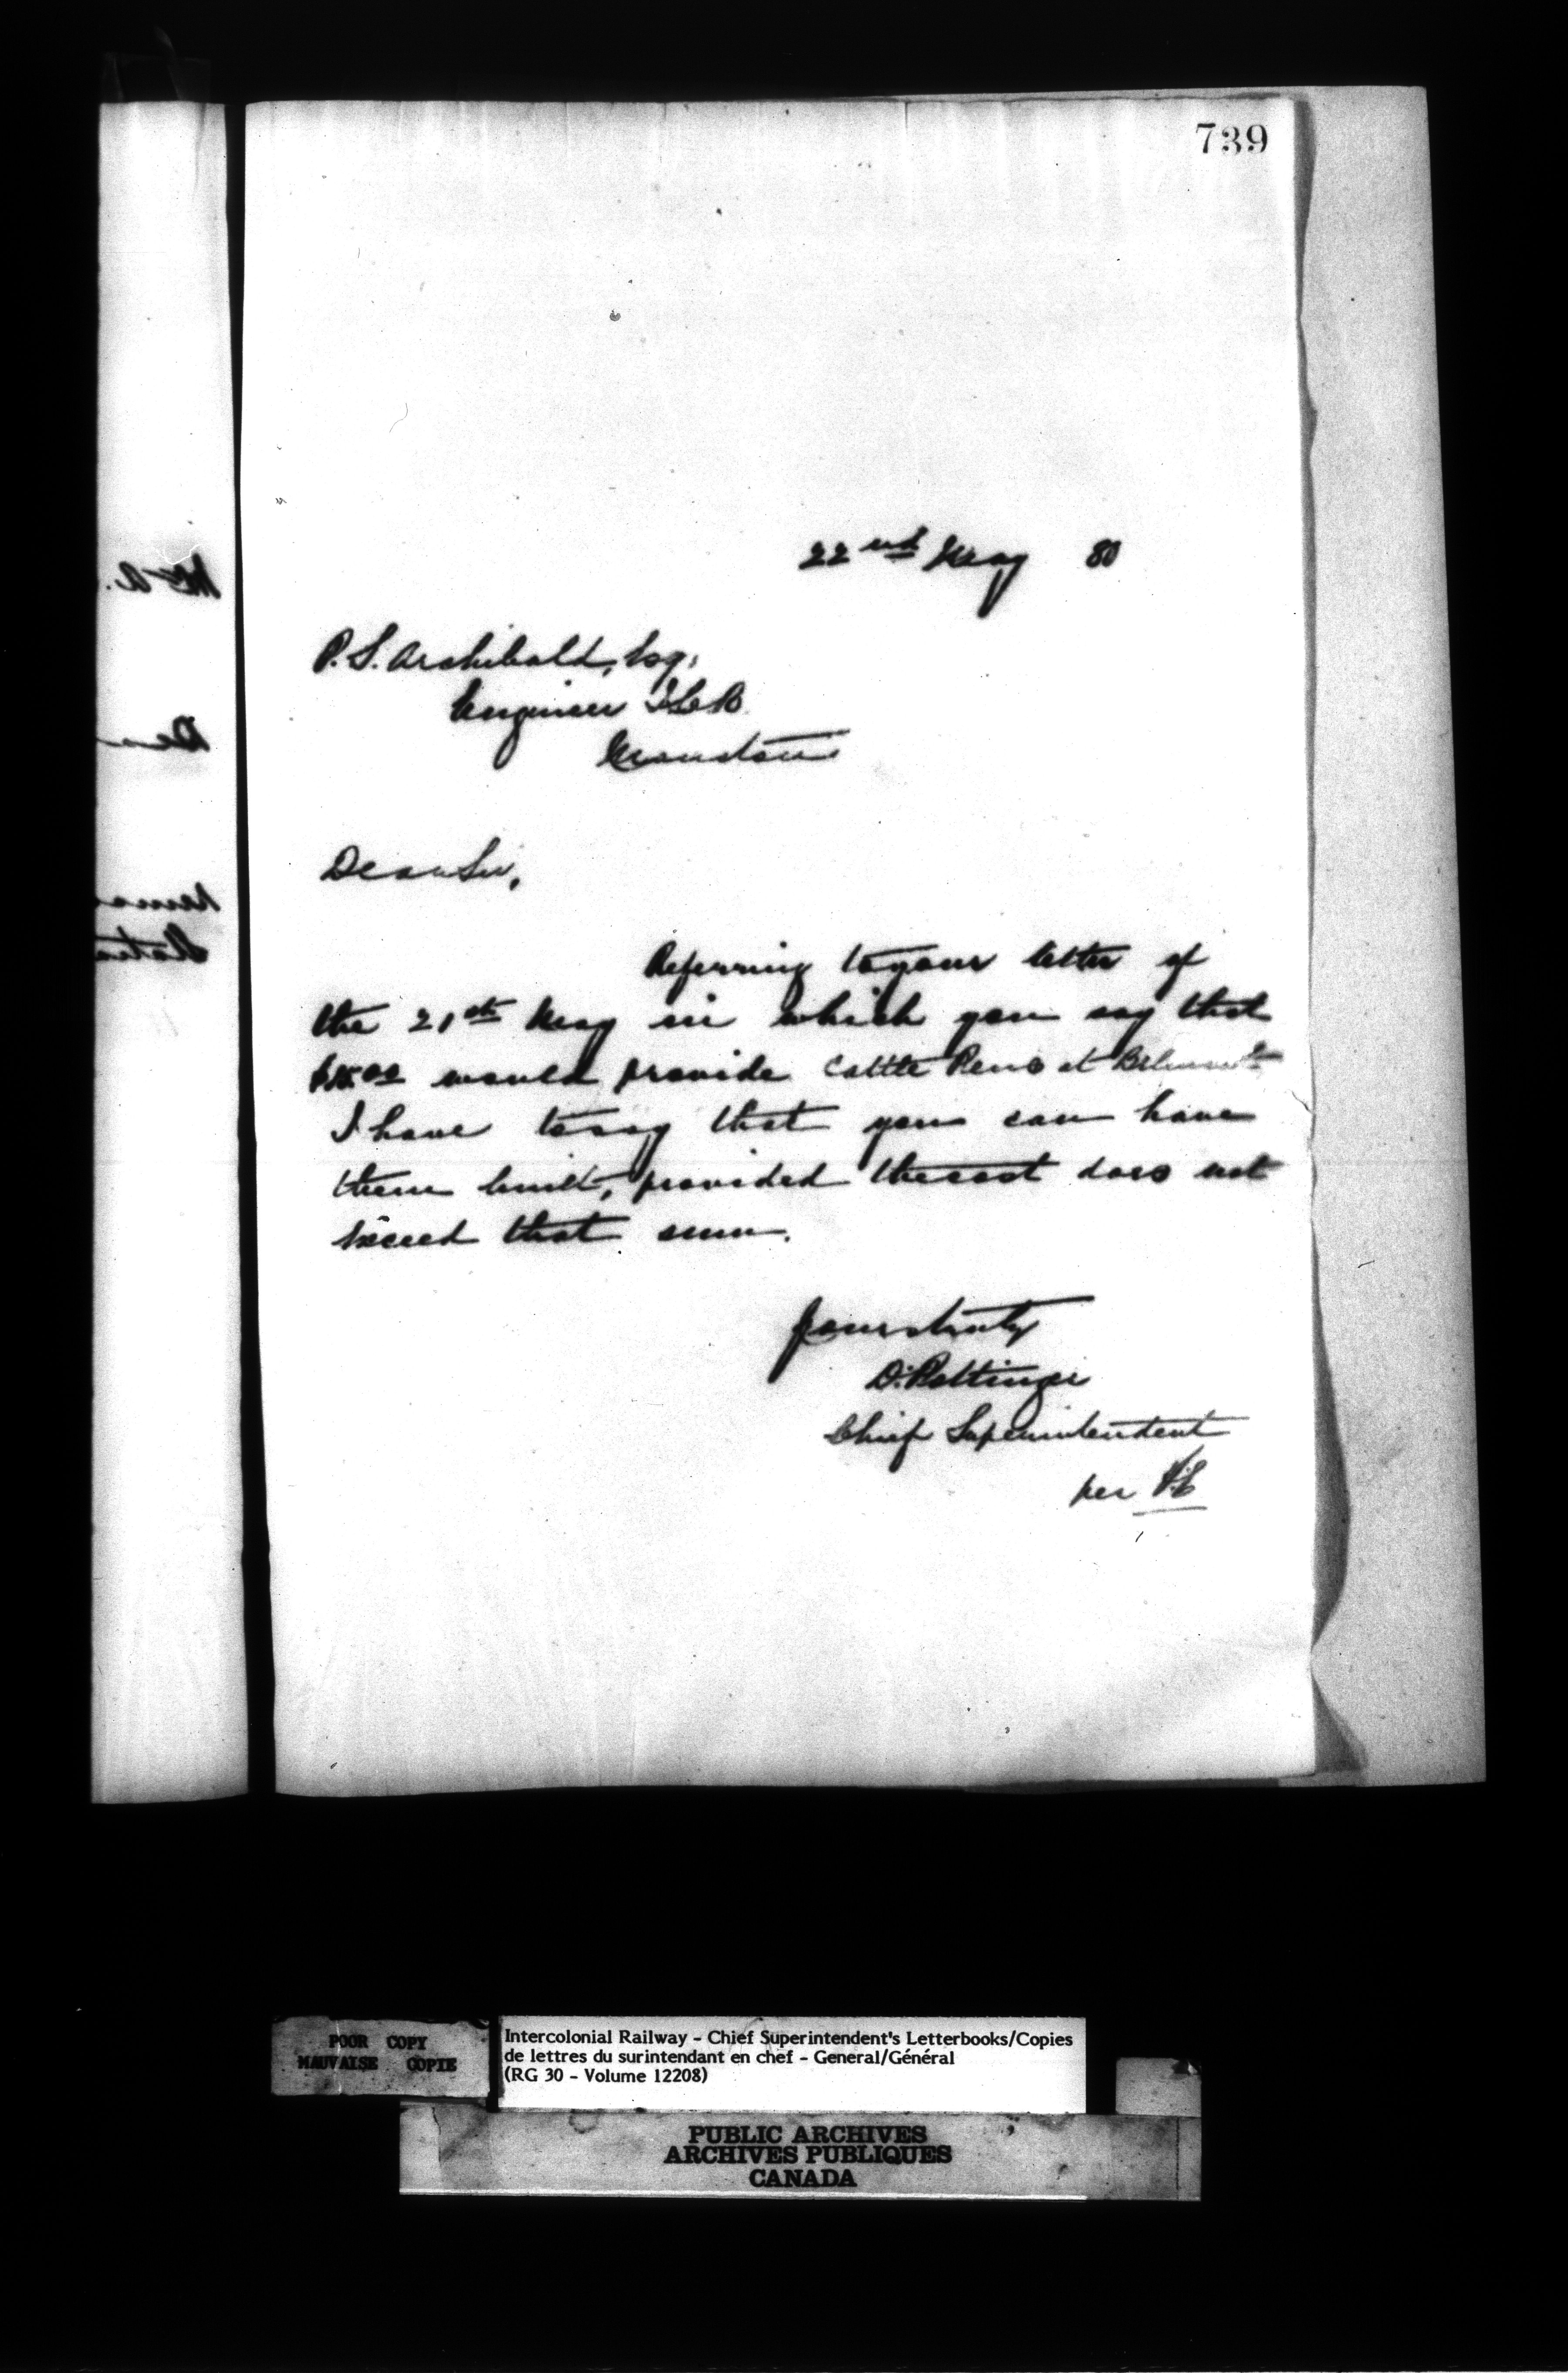 739
22nd May 80
P.S. Archibald, Esq,
Engineer I.C.R.
Moncton
Dear Sir,
Referring to your letter of
the 21st May in which you say that
would provide Cattle Pens at Belmont
I have to say that you can have
them built, provided the cost does not
exceed that sum.
Yours truly
D. Pottinger
Chief Superintendent
per
POOR COPY
MAUVAISE COPIE
Intercolonial Railway - Chief Superintendent's Letterbooks/Copies
de lettres du surintendant en chef - General/Général
(RG 30 - Volume 12208)
PUBLIC ARCHIVES
ARCHIVES PUBLIQUES
CANADA